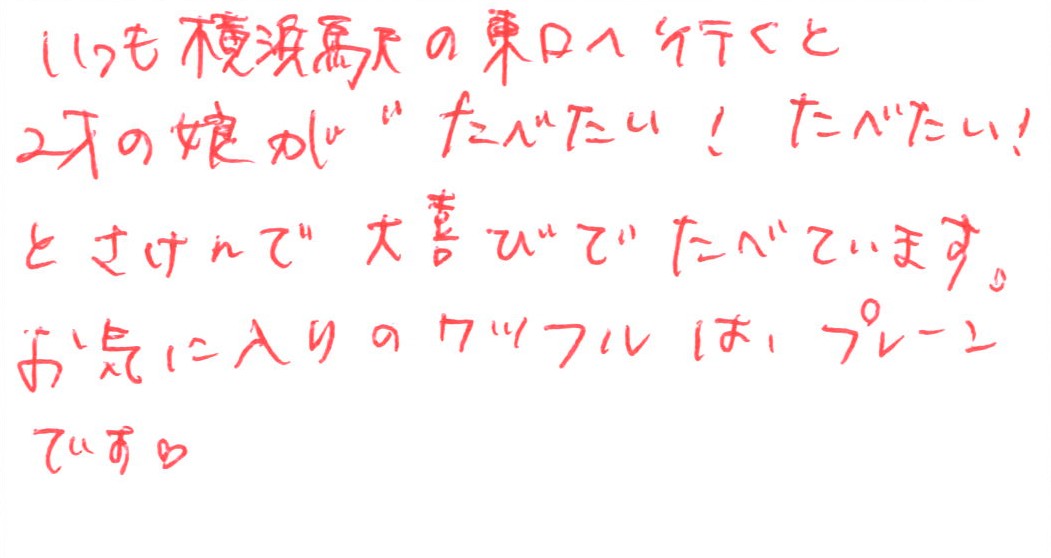 いつも横浜駅の東口へ行くと
2才の娘が〃たべたい！たべたい！
とさけんで大喜びでたべています。
お気に入りのワッフルは、プレーン
です♡